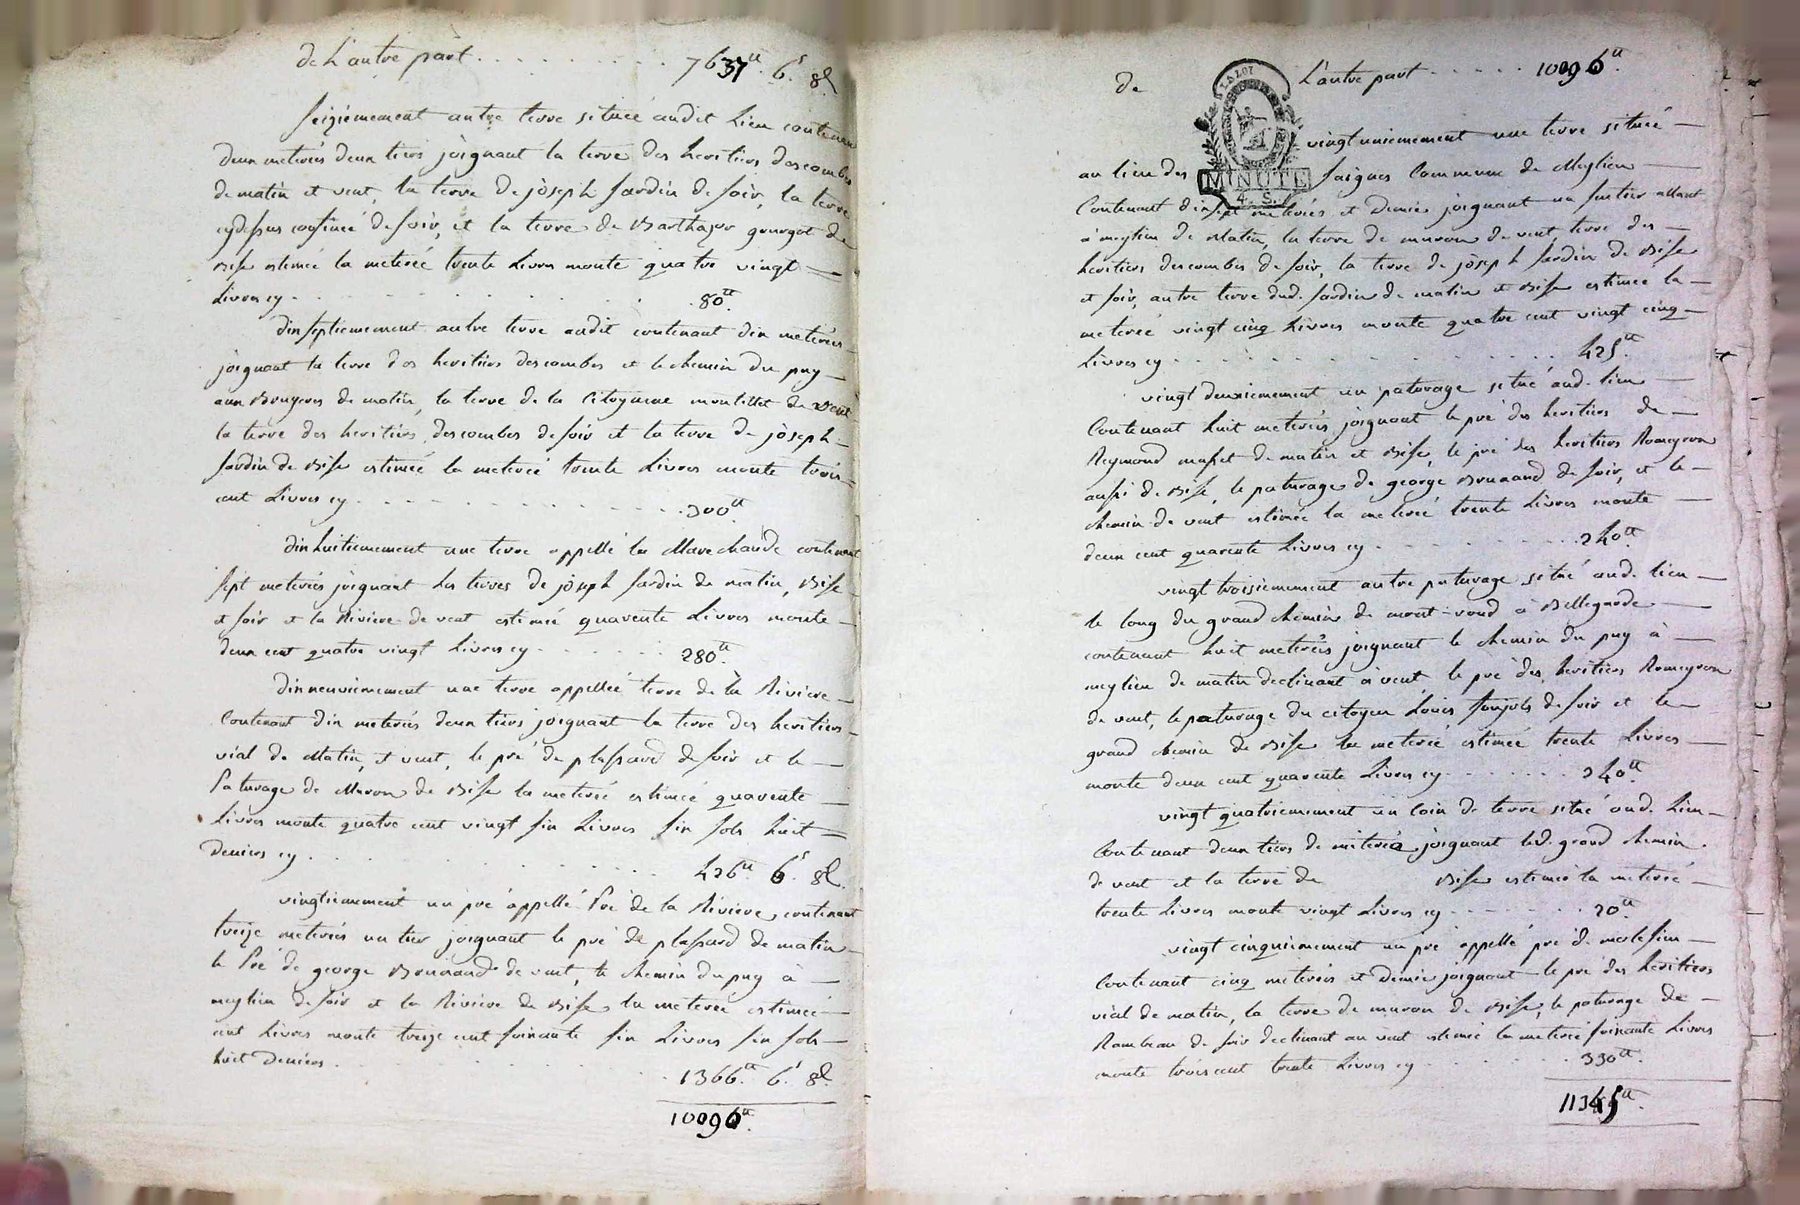 de L'autre part . . . . . . . . . 7637tt 6s 8d
Seiziémement autre terre située audit Lieu contenant
deux meterées deux tiers joignant la terre des heritiers descombes
de matin et vent, la terre de jòseph Jardin de soir, la terre
cydessus confinée de soir, et la terre de Barthazar gourgot de
Bise estimée la meterée trente Livres monte quatre vingt
Livres cy . . . . . . . . . 80tt
dixseptiemement autre terre audit contenant dix meterées
joignant la terre des heritiers descombes et le chemin du puy
aux Bruyeres de matin, la terre de la Citoyenne montillet de vent
la terre des heritiers descombes de soir et la terre de jòseph
Jardin de Bise estimée la meterée trente Livres monte trois
cent Livres cy . . . . . . . . . 300tt
dixhuitiemement une terre appellé la Marechande contenant
sept meterées joignant les terres de jòseph Jardin de matin, Bise
et soir et la Riviere de vent estimée quarente Livres monte
deux cent quatre vingt Livres cy . . . . . . 280tt
dixneuviemement une terre appellée terre de la Riviere
Contenant dix meterées deux tiers joignant la terre des heritiers
vial de Matin, et vent, le pré de plassard de soir et le
Paturage de Muron de Bise la meterée estimée quarente
Livres monte quatre cent vingt six Livres six sols huit
Deniers cy . . . . . . . . . 426tt 6s 8d
vingtiemement un pré appellé Pré de la Riviere, contenant
treize meterées un tier joignant le pré de plassard de matin
le Pré de george Brunand de vent, le chemin du puy à
meylieu de soir et la Riviere de Bise la meterée estimée
cent Livres monte treize cent soixante six Livres six sols
huit Deniers . . . . . . . . . 1366tt 6s 8d
10096tt
de L'autre part . . . . . 10096tt
LA LOI
MINUTE
4. S.
vingt uniemement une terre située
au lieu des Saignes Commune de Meylieu
Contenant dixsept meterées et Demie joignant un sentier allant
à meylieu de Matin, la terre de muron de vent terre des
heritiers descombes de soir, la terre de jòseph Jardin de Bise
et soir, autre terre dud. Jardin de matin et Bise estimée la
meterée vingt cinq Livres monte quatre cent vingt cinq
Livres cy . . . . . . . . . 425tt
vingt deuxiemement un paturage situé aud. lieu
Contenant huit meterées joignant le pré des heritiers de
Reymond de matin et Bise, le pré des heritiers Romeyron
aussi de Bise, le paturage de george Brunand de soir, et le
chemin de vent estimée la meterée trente Livres monte
deux cent quarente Livres cy . . . . . . 240tt
vingt troisiemement autre paturage situé aud. lieu
le long du grand chemin de mont-rond à Bellegarde
contenant huit meterées joignant le chemin du puy à
meylieu de matin declinant à vent le pré des heritiers Romeyron
de vent, le paturage du citoyen Louis de soir et le
grand chemin de Bise la meterée estimée trente Livres
monte deux cent quarente Livres cy . . . . . . 240tt
vingt quatriemement un coin de terre situé aud. Lieu
Contenant deux tiers de meterée joignant led. grand chemin
de vent et la terre de Bise estimée la meterée
trente Livres monte vingt Livres cy . . . . . . 20tt
vingt cinquiemement un pré appellé pré de
Contenant cinq meterées et Demie joignant le pré des heritiers
vial de matin, la terre de muron de Bise, le paturage de
Rambeau de soir declinant au vent estimé la meterée soixante Livres
monte trois cent trente Livres cy . . . . . 330tt
11345tt